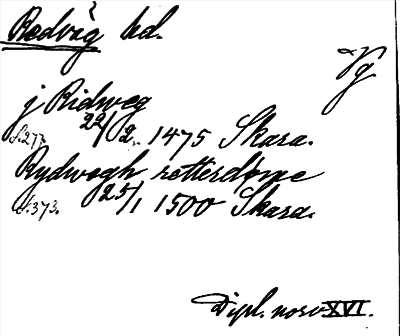 Redväg hd.
Vg
j Ridweg
s.277. 22/2. 1475 Skara.
Rydwegh retterdøme
s.373. 25/1 1500 Skara.
Dipl. norv XVI.